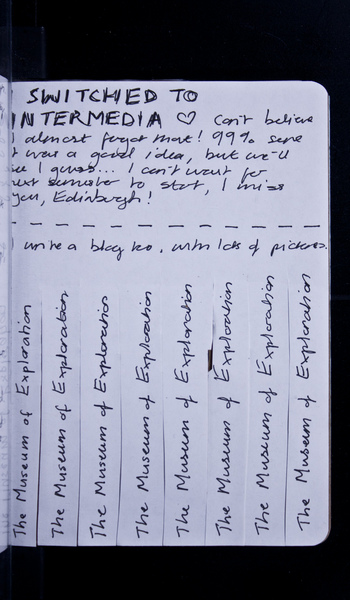 SWITCHED TO
INTERMEDIA ♡ Can't believe
I almost forgot that! 99% sure
it was a good idea, but we'll
see I guess... I can't wait for
next semester to start, I miss
you, Edinburgh!
I write a blog too, with lots of pictures.
The Museum of Exploration
The Museum of Exploration
The Museum of Exploration
The Museum of Exploration
The Museum of Exploration
The Museum of Exploration
The Museum of Exploration
The Museum of Exploration